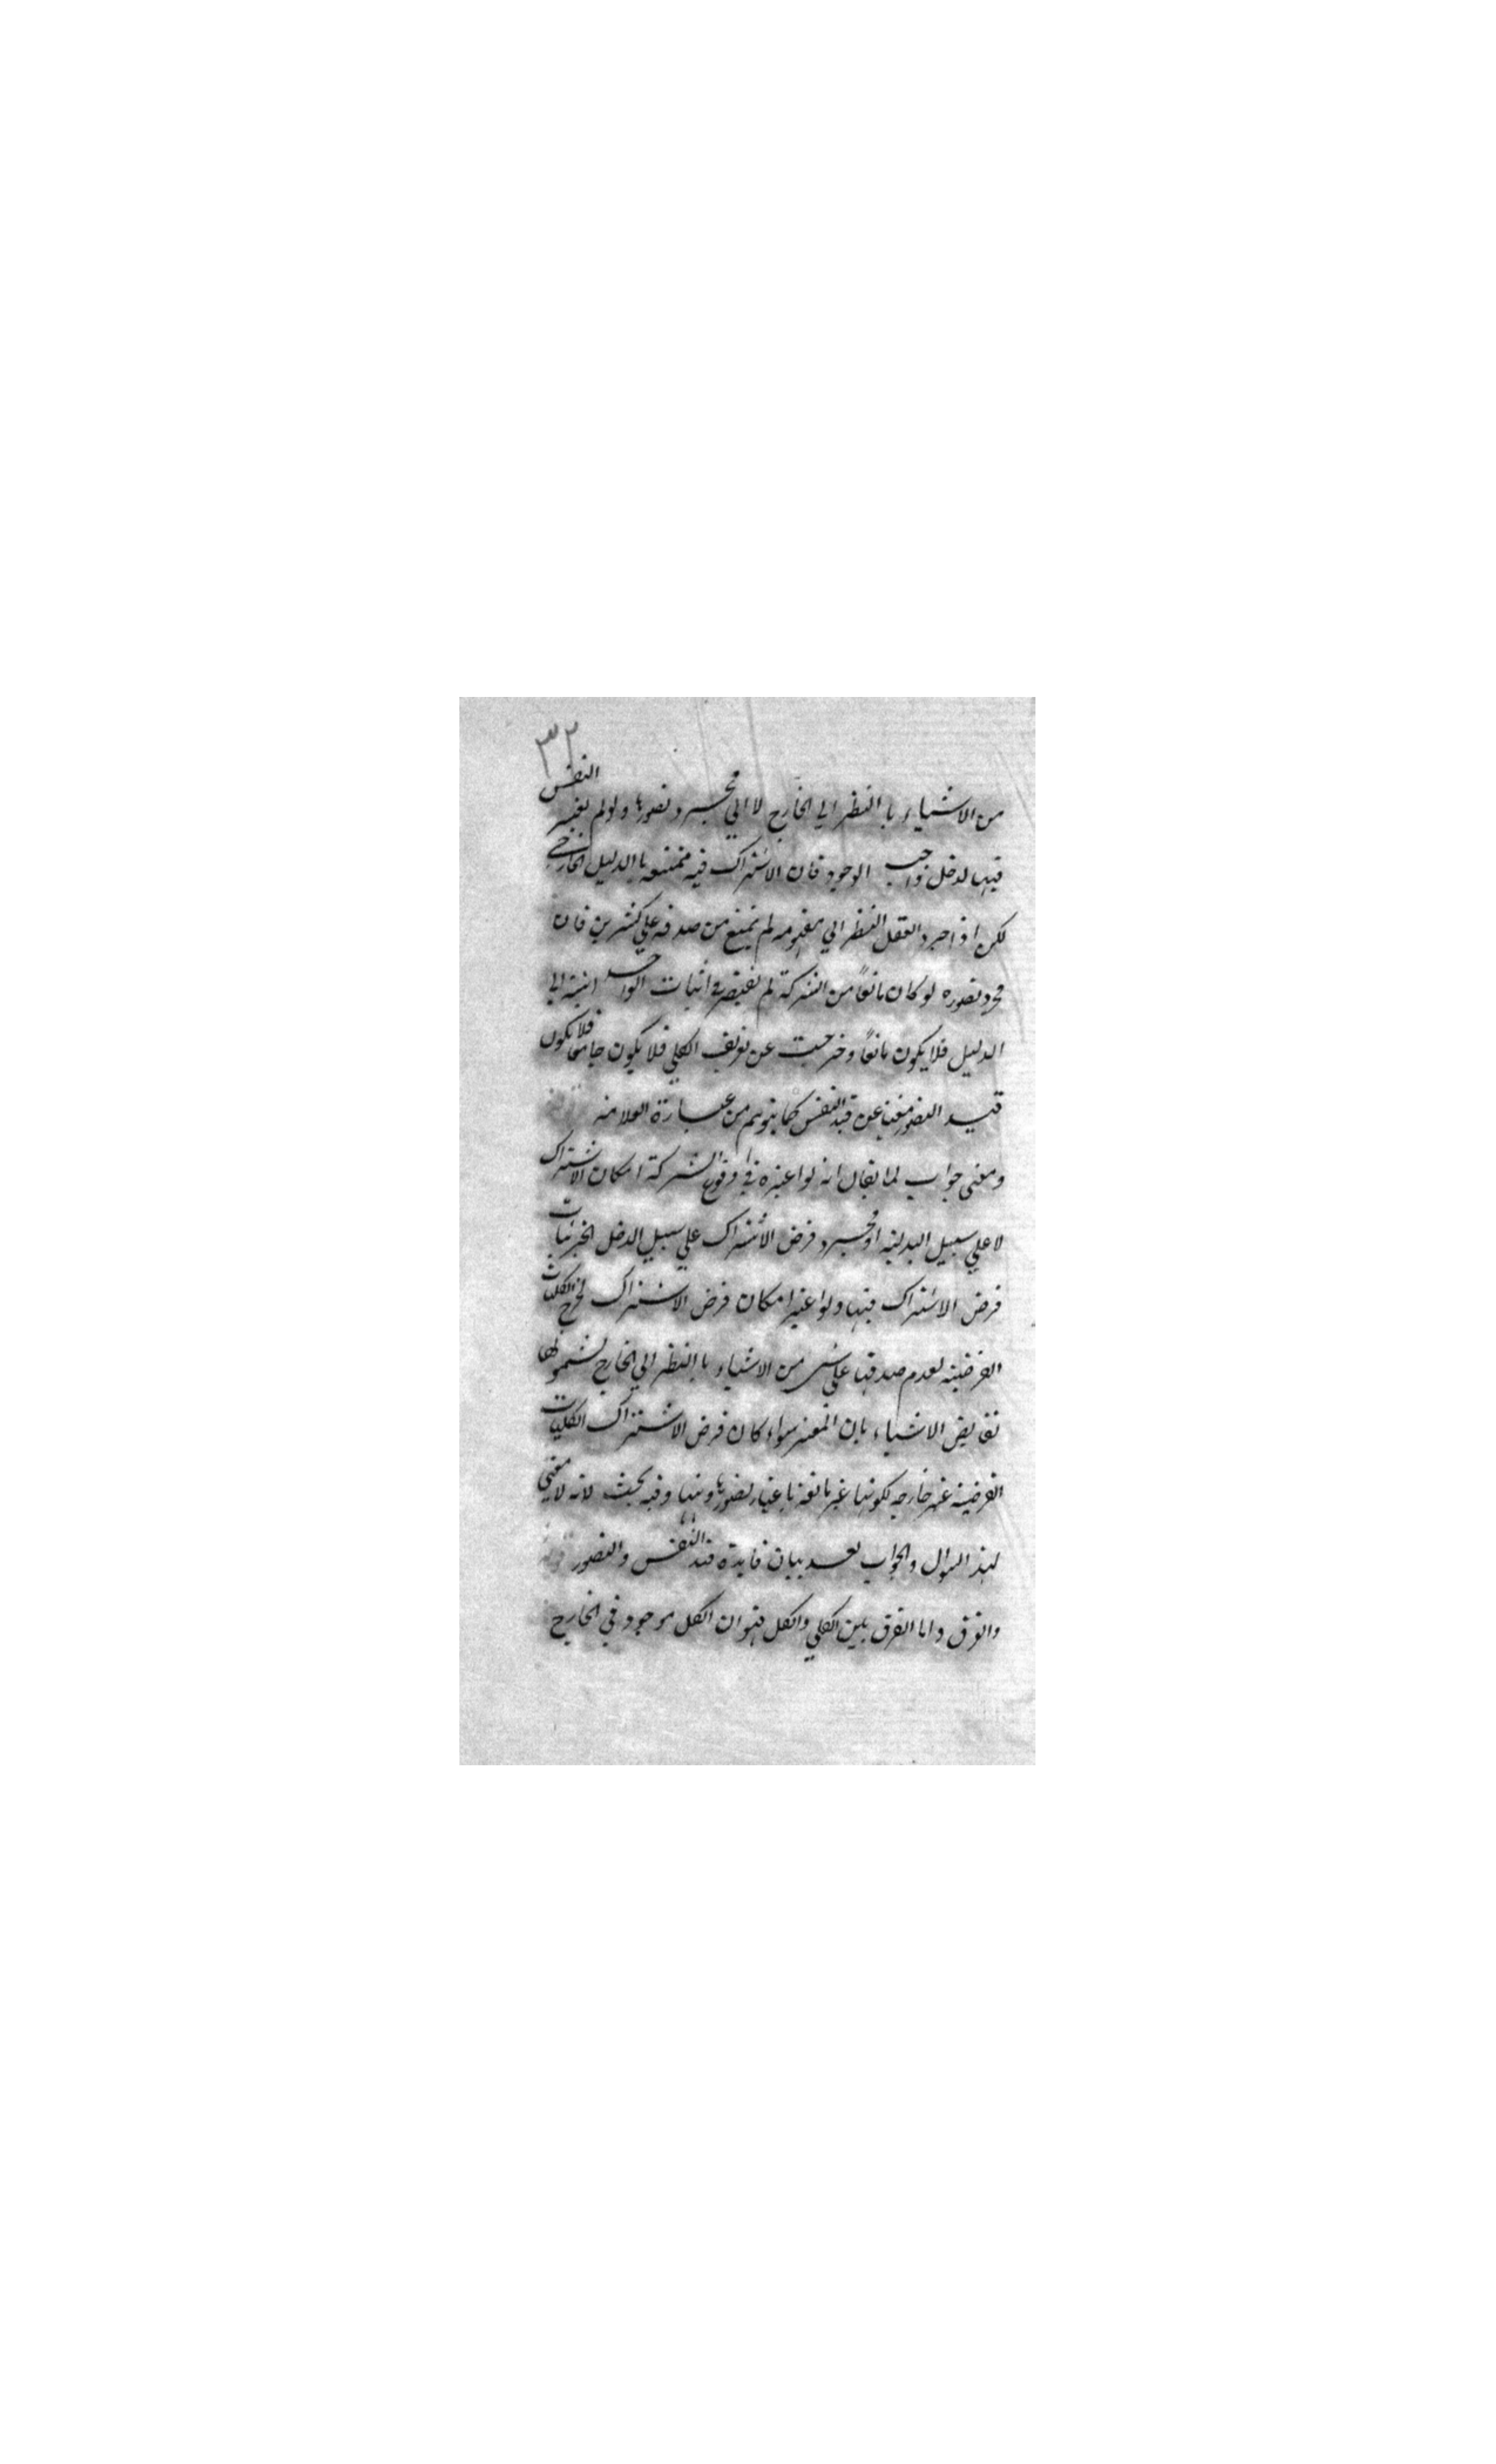 ٣٢
من الاشياء باالنظر الي الخارج لا الي مجرد تصورها ولو لم يعتبر النفس
فيها لدخل واجب الوجود فان الاشتراك فيه ممتنعه باالدليل الخارجي
لكن اذا جرد العقل النظر الي مفهومه لم يمتنع من صدقه علي كثيرين فان
مجرد تصوره لو كان مانعاً من الشركة لم يفتقر في اثبات الواحد انيته الي
الدليل فلا يكون مانعاً وخرجت عن تعريف الكلي فلا يكون جامعا فلا يكون
قيد التصور مغنيا عن قيد النفس كما يتوهم من عبارة العلامه
ومعني جواب لما يقال انه لو اعتبره في وقوع الشركة امكان الاشتراك
لا علي سبيل البدليه او مجرد فرض الاشتراك علي سبيل الدخل الجزئيات
فرض الاشتراك فيها ولو اعتبر امكان فرض الاشتراك لخرج الكليات
الفرضيه لعدم صدقها علي شي من الاشياء باالنظر الي الخارج لشمولها
نقايض الاشياء بان المعتبر سواء كان فرض الاشتراك الكليات
الفرضيه غير خارجه لكونها غير مانعة باعتبار تصورها ومنها وفيه بحث لانه لا معني
لهذ السوال والجواب بعد بيان فايدة قيد النفس والتصور
والفرق واما الفرق بلين الكلي والكل فهو ان الكل موجود في الخارج